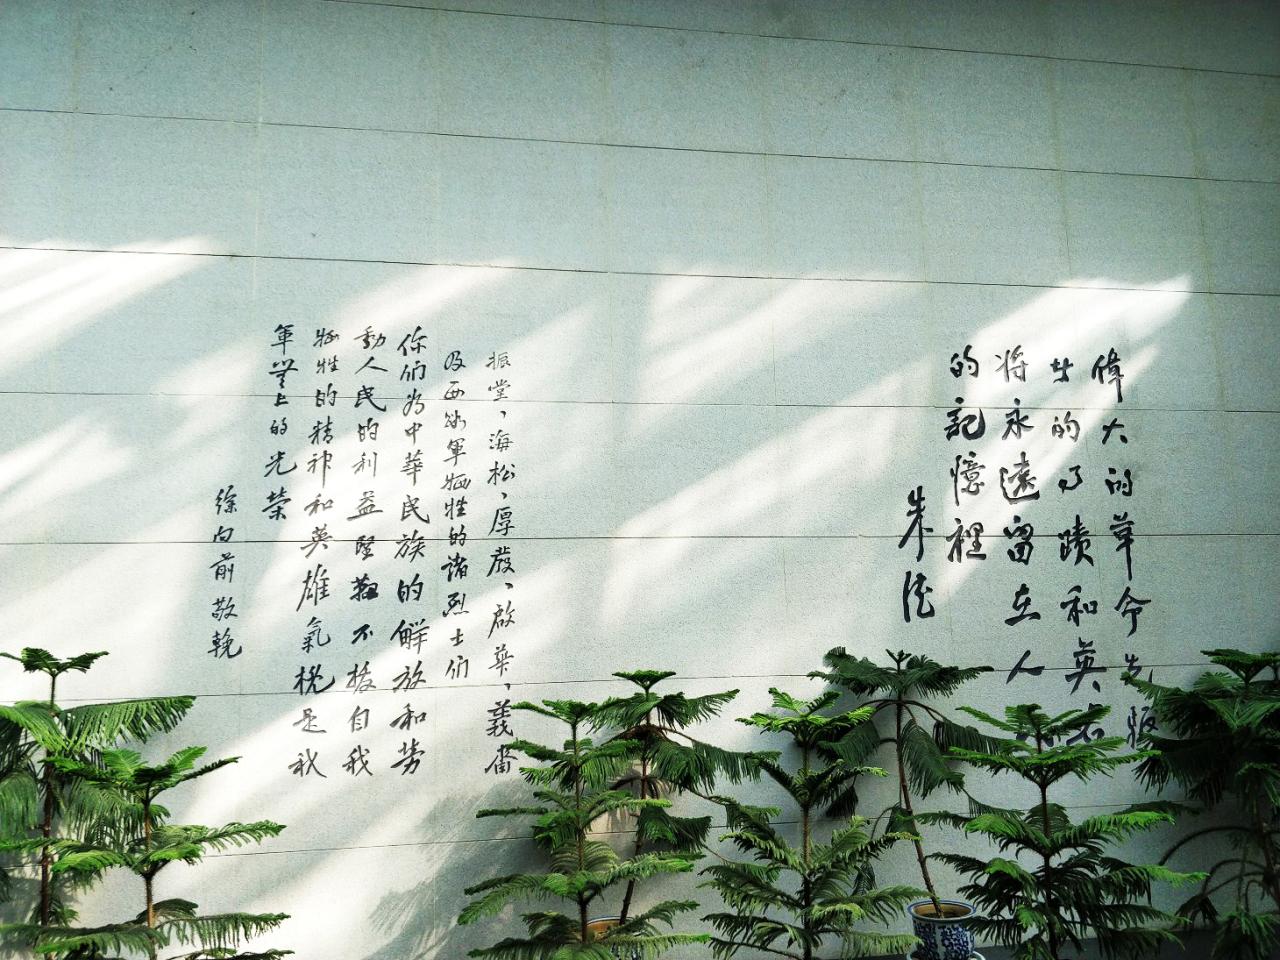 偉大的革命先
的事蹟和英名
将永遠留在人
的記憶裡
朱德
振堂、海松、厚發、啟華、義齋
及西路軍牺牲的諸烈士们
你们为中華民族的解放和劳
動人民的利益堅韌不拔自我
牺牲的精神和英雄氣概是我
軍無上的光榮
徐向前敬輓